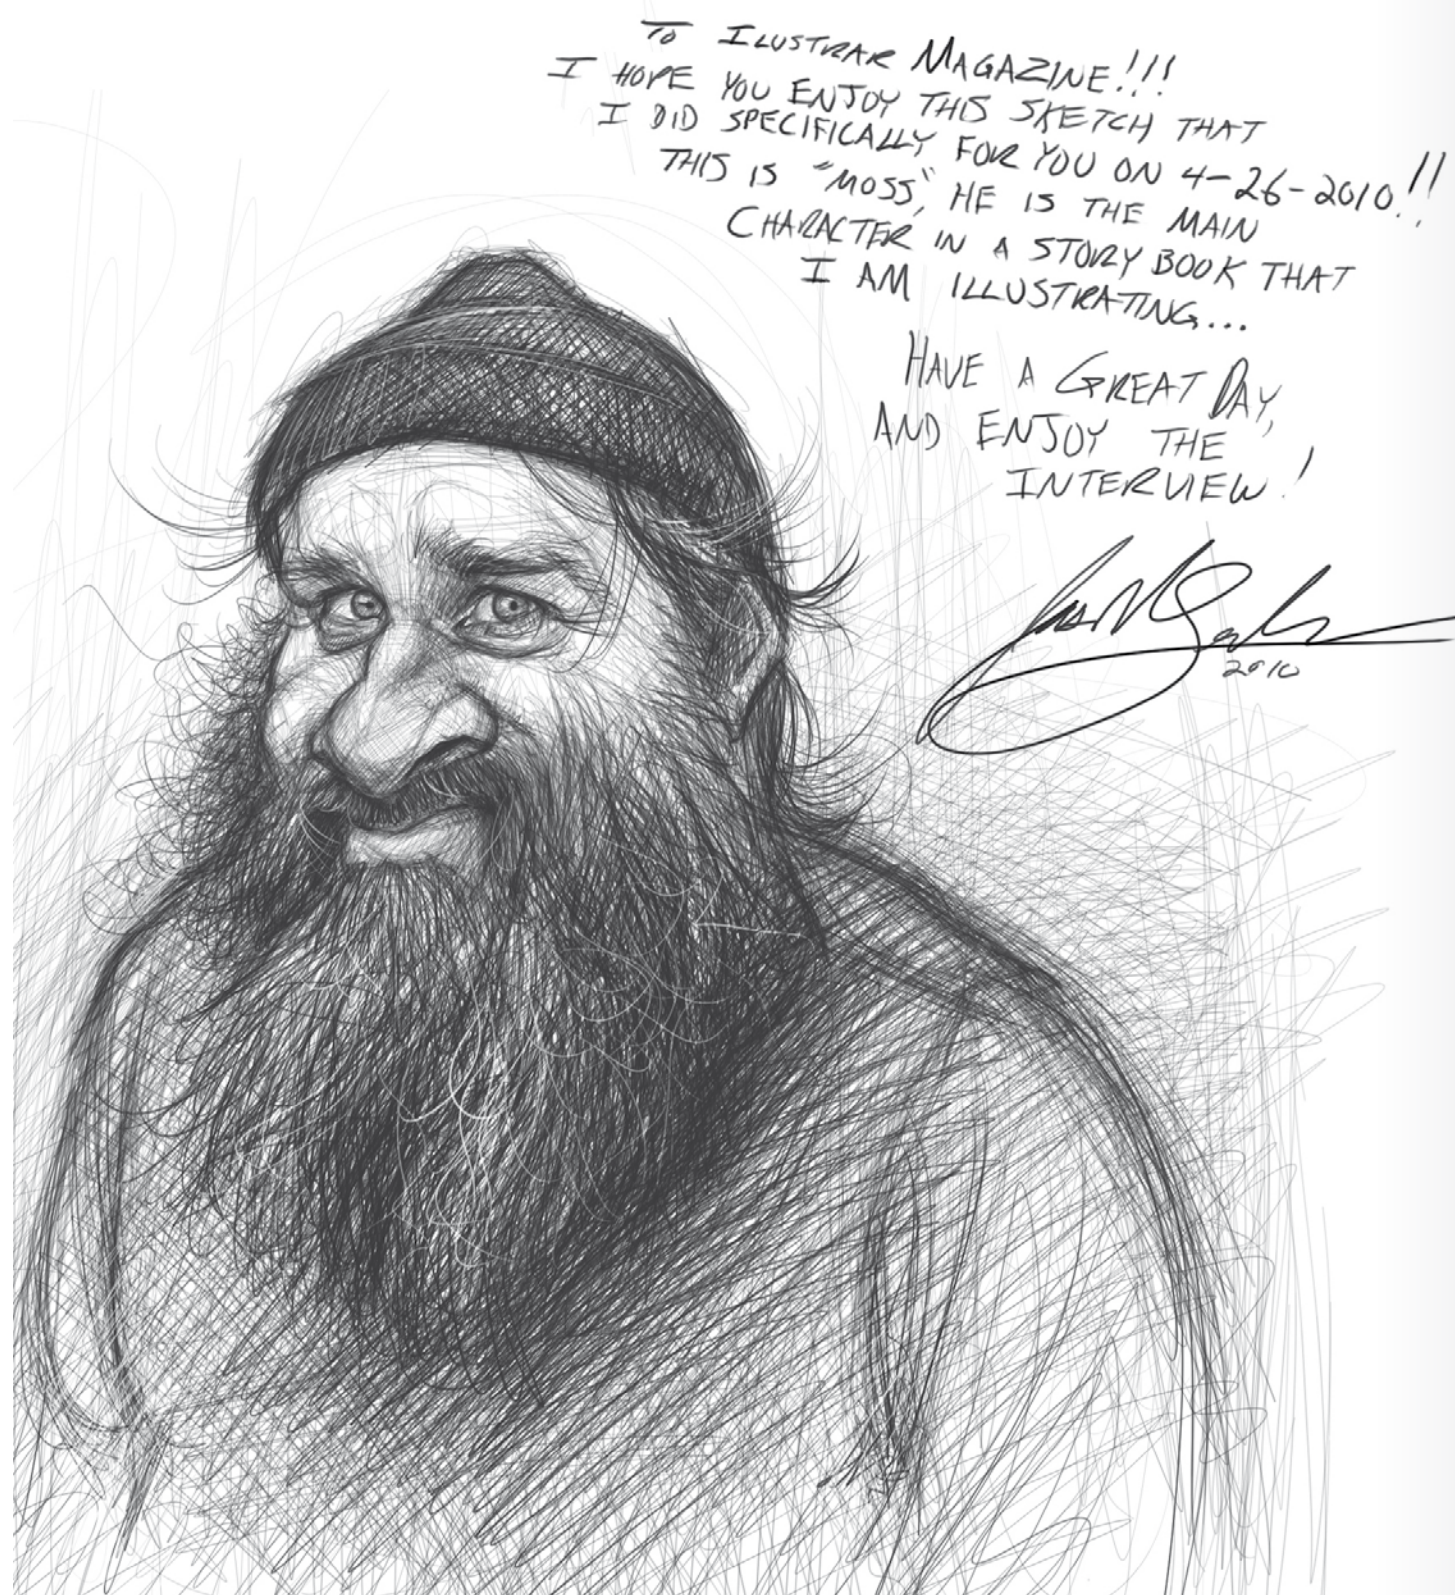 TO ILUSTRAR MAGAZINE!!!
I HOPE YOU ENJOY THIS SKETCH THAT
I DID SPECIFICALLY FOR YOU ON 4-26-2010!!
THIS IS "MOSS", HE IS THE MAIN
CHARACTER IN A STORY BOOK THAT
I AM ILLUSTRATING...
HAVE A GREAT DAY,
AND ENJOY THE
INTERVIEW!
2010